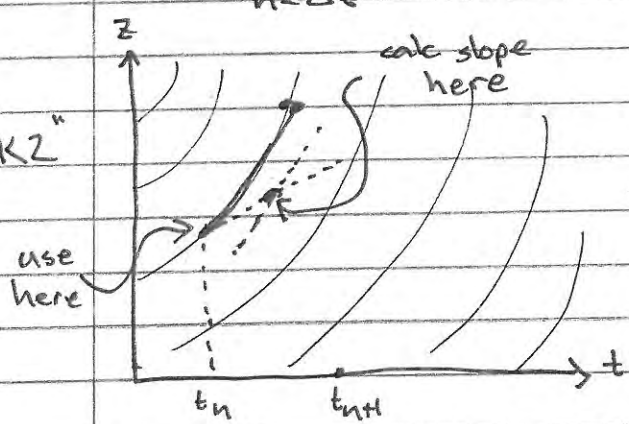 z
calc slope
here
K2"
use
here
t
tn
tn+1